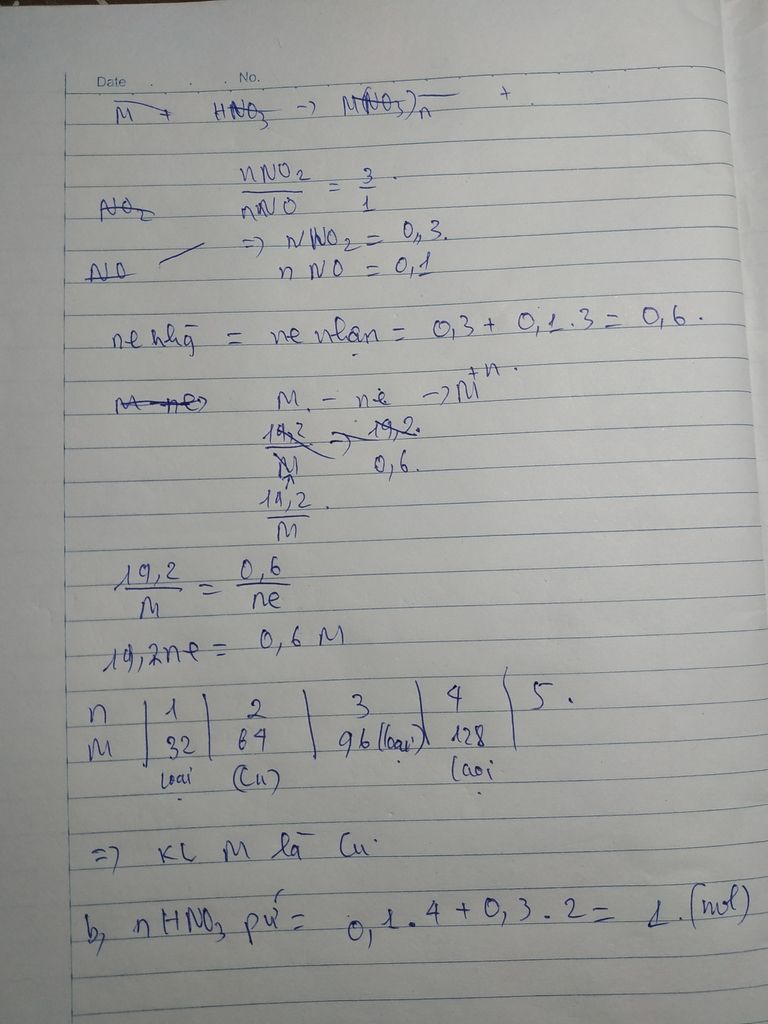 Date . . . No.
M + HNO3 -> M(NO3)n +
nNO2/nNO = 3/1
NO2
=> nNO2 = 0,3.
NO
nNO = 0,1
ne nhg = ne nhận = 0,3 + 0,1.3 = 0,6.
M - ne -> M - ne -> M+n.
19,2/M => 19,2/0,6.
19,2/M.
19,2/M = 0,6/ne
19,2ne = 0,6 M
n | 1 | 2 | 3 | 4 | 5.
M | 32 | 64 | 96 (loại) | 128
loại (Cu) loại
=> KL M là Cu.
b, nHNO3 pứ = 0,1.4 + 0,3.2 = 1. (mol)